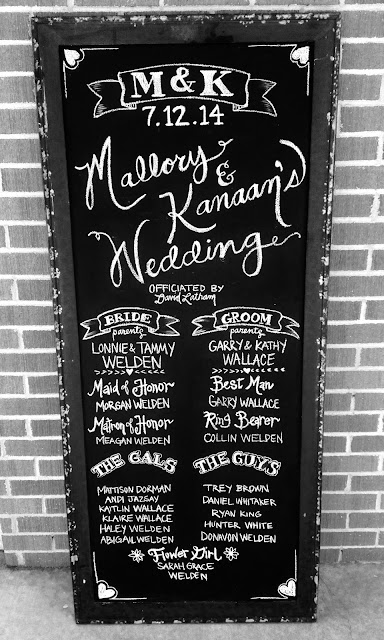 M & K
7.12.14
Mallory
& Kanaan's
Wedding
OFFICIATED BY
David Latham
BRIDE
parents
LONNIE & TAMMY
WELDEN
Maid of Honor
MORGAN WELDEN
Matron of Honor
MEAGAN WELDEN
THE GALS
MATTISON DORMAN
ANDI JAZGAY
KAITLIN WALLACE
KLAIRE WALLACE
HALEY WELDEN
ABIGAIL WELDEN
GROOM
parents
GARRY & KATHY
WALLACE
Best Man
GARRY WALLACE
Ring Bearer
COLLIN WELDEN
THE GUYS
TREY BROWN
DANIEL WHITAKER
RYAN KING
HUNTER WHITE
DONAVON WELDEN
Flower Girl
SARAH GRACE
WELDEN